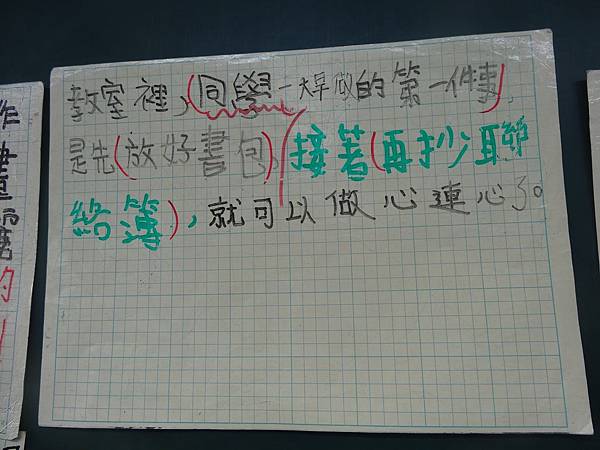 教室裡，(同學一大早做的第一件事)
是先(放好書包)，接著(再抄聯
絡簿)，就可以做心連心了。